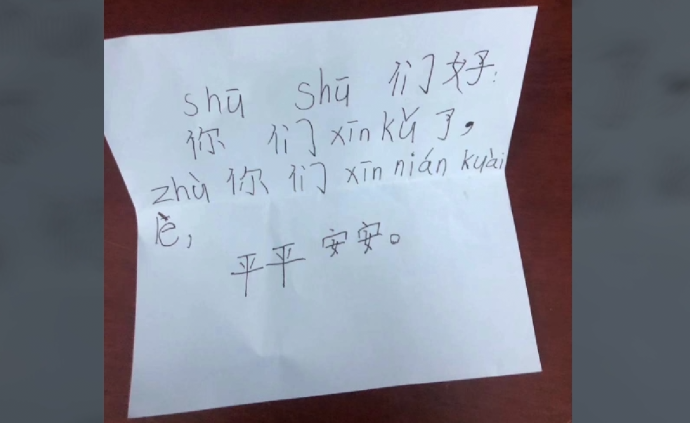 shū shū 们好:
你 们 xīn kǔ 了,
zhù 你 们 xīn nián kuài
lè,
平平 安安。